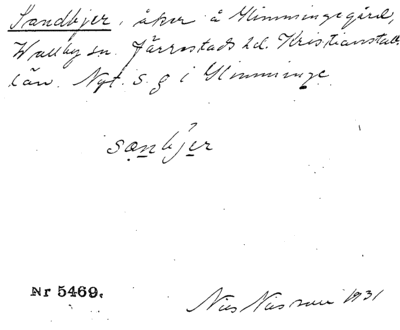 Sandbjer, åker å Glimmingegård,
Wallby sn. Järrestads hd. Kristianstads
län. Nyt. s. g i Glimminge.
sanbjer
Nr 5469.
Nils Nilsson 1931